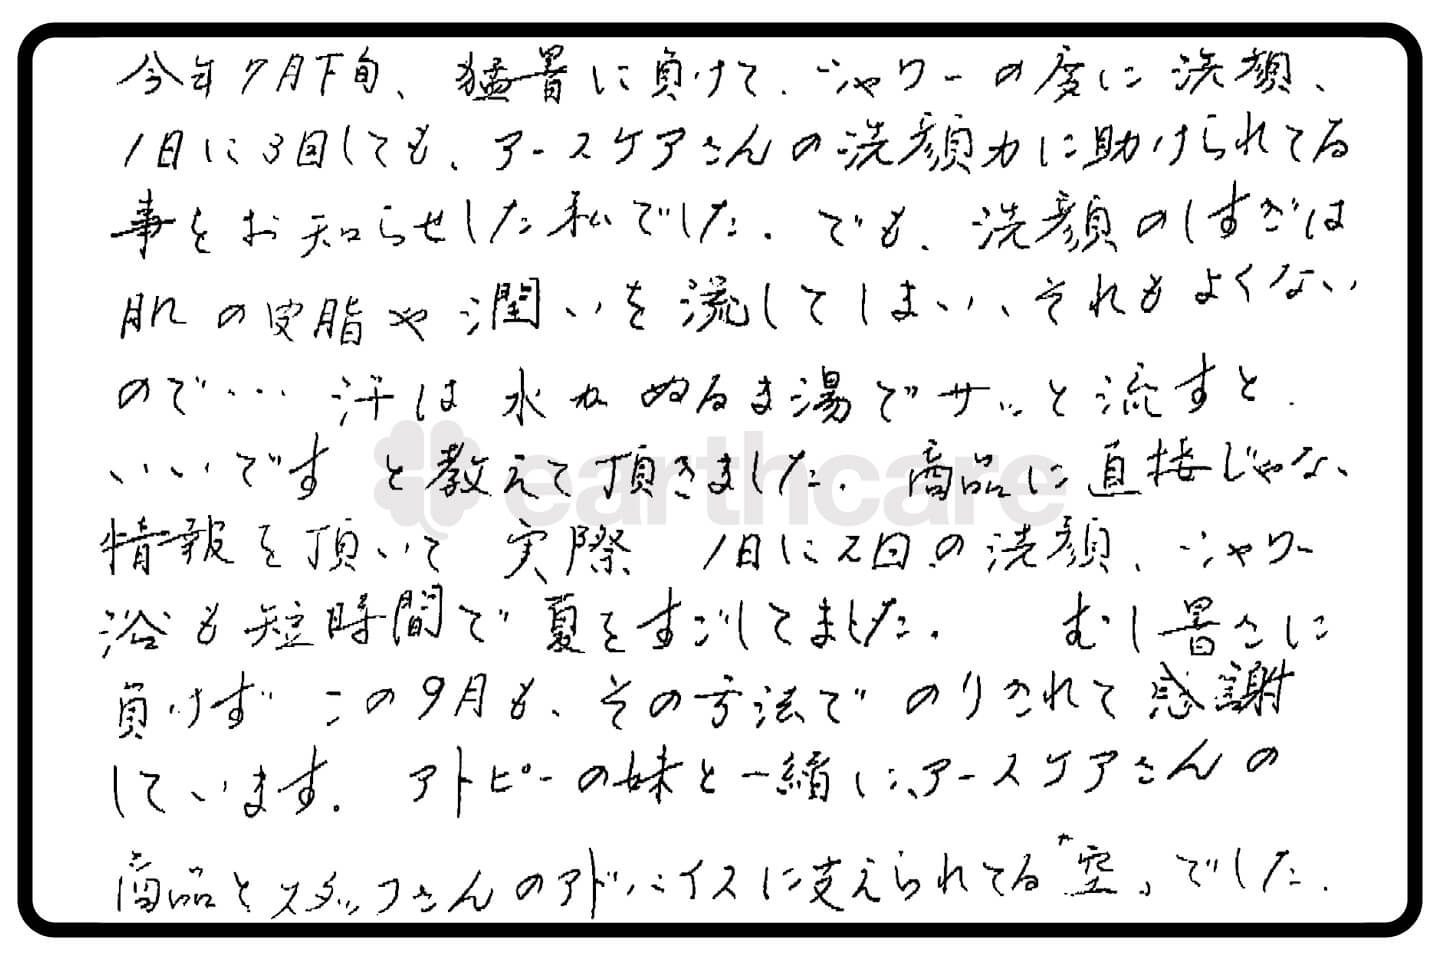 今年7月下旬、猛暑に負けて、シャワーの度に洗顔、
1日に3回しても、アースケアさんの洗顔力に助けられてる
事をお知らせした私でした。でも、洗顔のしすぎは
肌の皮脂や潤いを流してしまい、それもよくない
ので… 汗は水かぬるま湯でサッと流すと、
いいですと教えて頂きました。商品に直接じゃない
earthcare
情報を頂いて 実際 1日に2回の洗顔、シャワー
浴も短時間で夏をすごしてました。 むし暑さに
負けず この9月も、その方法でのりきれて感謝
しています。 アトピーの妹と一緒に、アースケアさんの
商品とスタッフさんのアドバイスに支えられてる“空”でした。